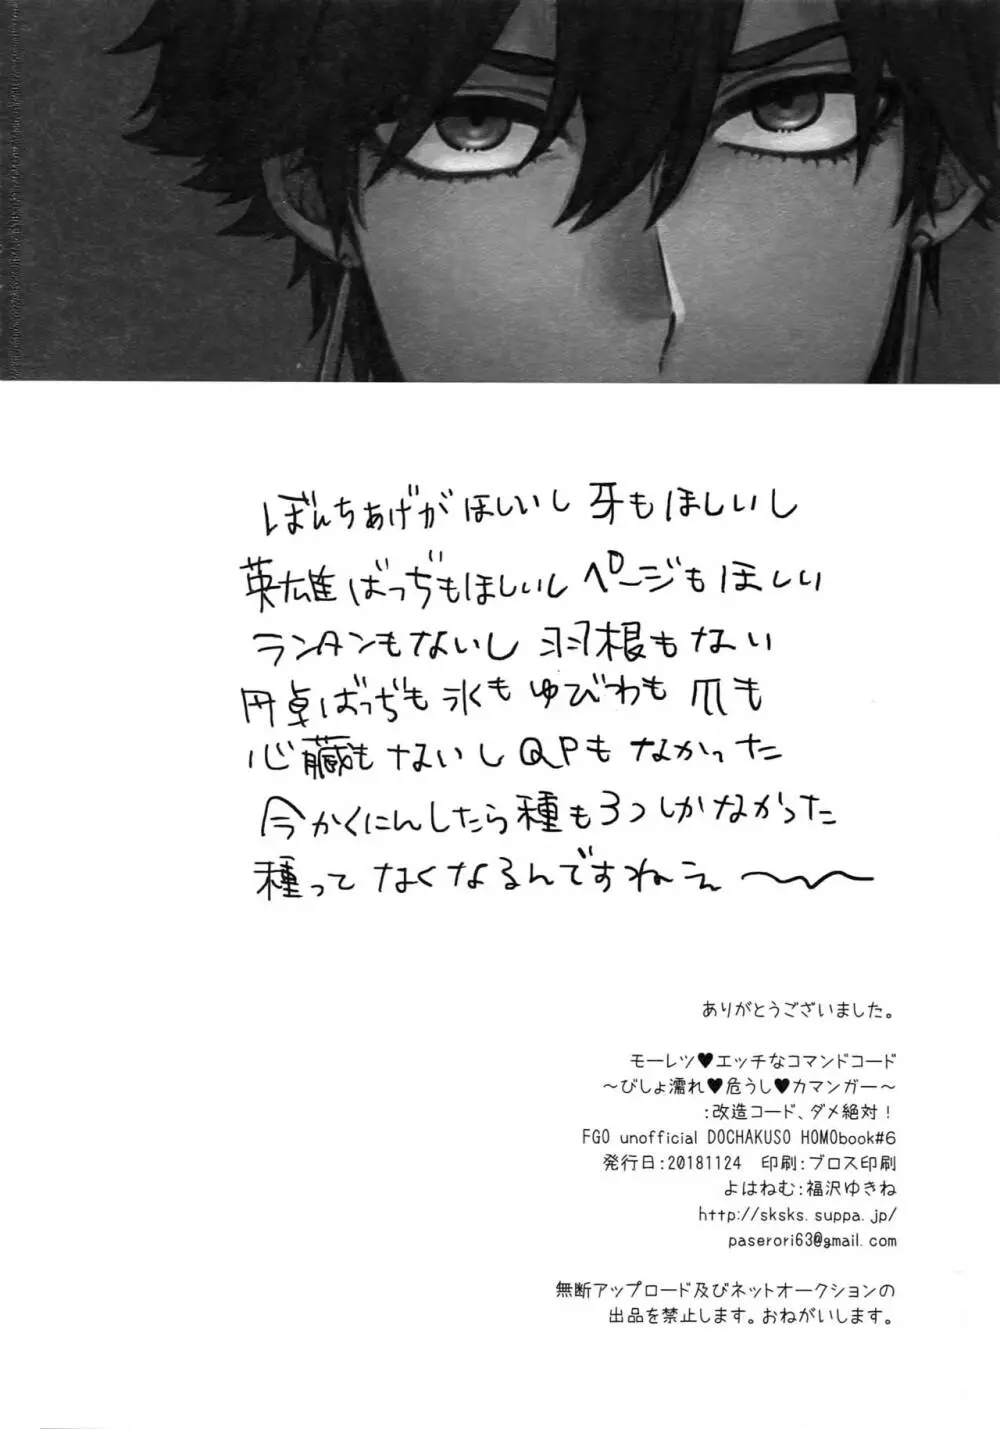 ぼんちあげがほしいし 牙もほしいし
英雄ばっぢもほしいし ページもほしい
ランタンもないし 羽根もない
円卓ばっぢも 氷も ゆびわも 爪も
心臓も ないし QPも なかった
今かくにんしたら種も3つしかなかった
種って なくなるんですねえ〜〜
ありがとうございました。
モーレツ♥エッチなコマンドコード
～びしょ濡れ♥危うし♥カマンガー～
:改造コード、ダメ絶対！
FGO unofficial DOCHAKUSO HOMObook#6
発行日:20181124 印刷:ブロス印刷
よはねむ:福沢ゆきね
http://sksks.suppa.jp/
paserori63@gmail.com
無断アップロード及びネットオークションの
出品を禁止します。おねがいします。